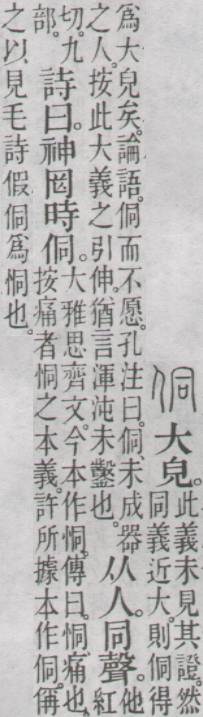 侗 大皃。此義未見其證。然同義近大。則侗得
爲大皃矣。論語。侗而不愿。孔注曰。侗、未成器之人。按此大義之引伸。猶言渾沌未鑿也。从人。同聲。他紅
切。九部。詩曰。神罔時侗。大雅思齊文。今本作恫。傳曰。恫、痛也。按痛者恫之本義。許所據本作侗。偁
之以見毛詩假侗爲恫也。